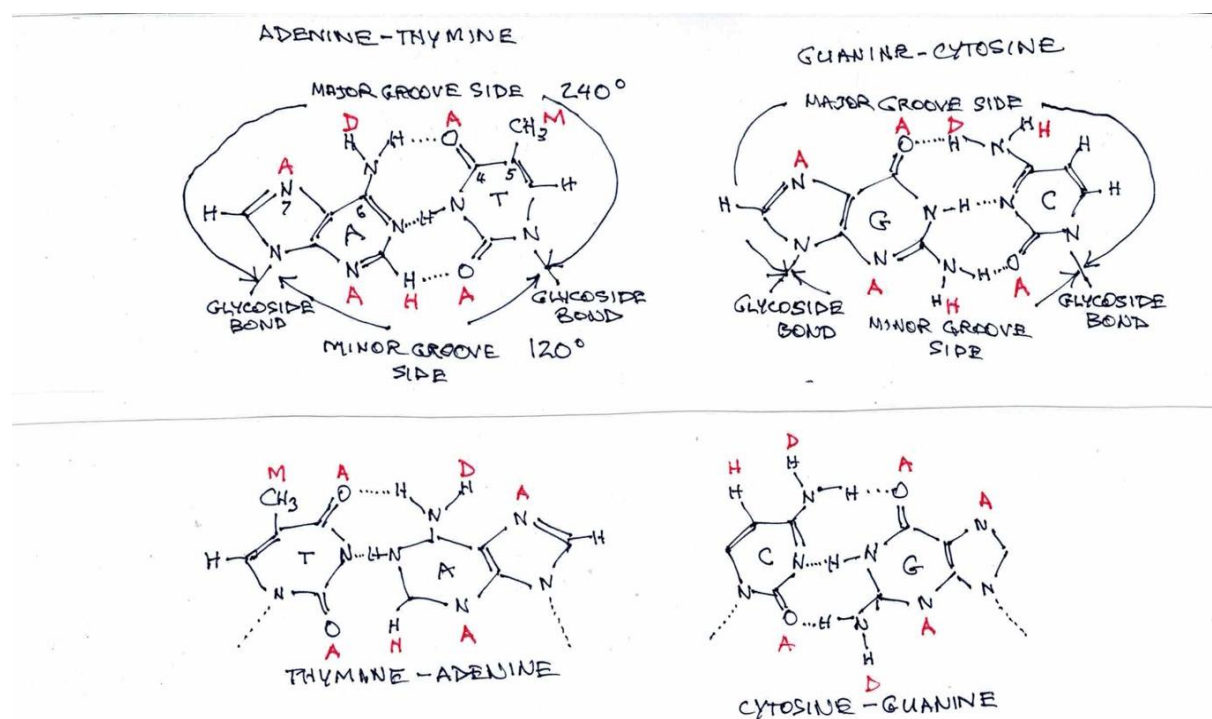 ADENINE-THYMINE
MAJOR GROOVE SIDE 240°
D A M
H H O CH3
A N 4 5
N 7 6 T H
H A N H N
N N N
H O
A H A
GLYCOSIDE
BOND
GLYCOSIDE
BOND
MINOR GROOVE 120°
SIDE
GUANINE-CYTOSINE
MAJOR GROOVE SIDE
A D H H
A O H N H
N
H G N H N C H
N N N
N H O
A H H A
GLYCOSIDE
BOND
MINOR GROOVE
SIDE
GLYCOSIDE
BOND
M A D
CH3 O H H A
N N
H T N H N A H
N N N
O H
A H A
THYMINE-ADENINE
D
H H A
H N H O A
N
C N H N G
N N N
O H N
A H A
D
CYTOSINE-GUANINE